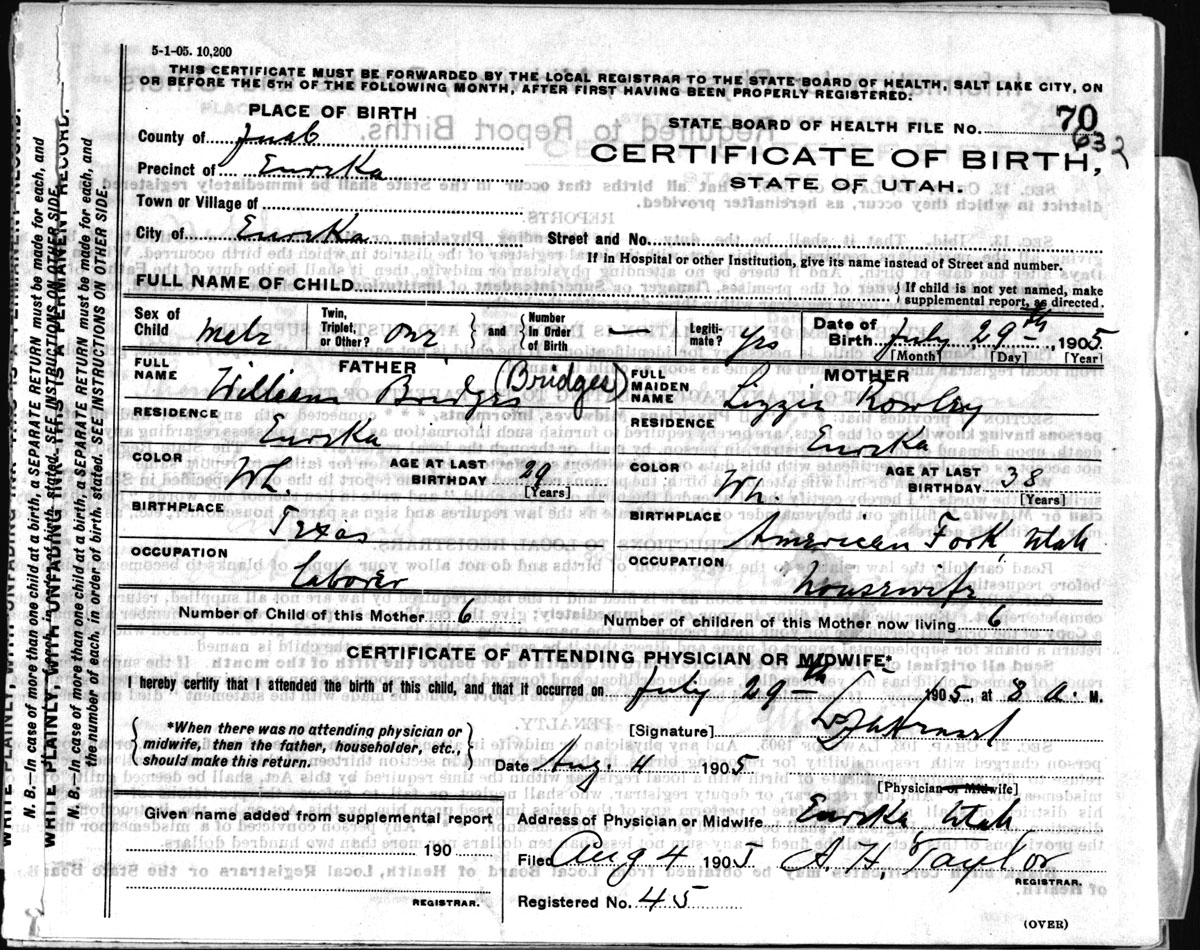 5-1-05. 10,200
THIS CERTIFICATE MUST BE FORWARDED BY THE LOCAL REGISTRAR TO THE STATE BOARD OF HEALTH, SALT LAKE CITY, ON
OR BEFORE THE 5TH OF THE FOLLOWING MONTH, AFTER FIRST HAVING BEEN PROPERLY REGISTERED.
PLACE OF BIRTH
County of Juab
Precinct of Eureka
Town or Village of
City of Eureka
STATE BOARD OF HEALTH FILE No. 70
632
CERTIFICATE OF BIRTH,
STATE OF UTAH.
Street and No.
If in Hospital or other Institution, give its name instead of Street and number.
FULL NAME OF CHILD
{ If child is not yet named, make
supplemental report, as directed.
Sex of Child Male Twin, Triplet, or Other? One } and { Number In Order of Birth — Legiti- mate? yes Date of Birth July 29th, 1905
[Month] [Day] [Year]
FATHER
FULL NAME William Bridges (Bridges)
RESIDENCE Eureka
COLOR Wh. AGE AT LAST BIRTHDAY 29
[Years]
BIRTHPLACE Texas
OCCUPATION laborer
MOTHER
FULL MAIDEN NAME Lizzie Rowley
RESIDENCE Eureka
COLOR Wh. AGE AT LAST BIRTHDAY 38
[Years]
BIRTHPLACE American Fork, Utah
OCCUPATION housewife
Number of Child of this Mother 6 Number of children of this Mother now living 6
CERTIFICATE OF ATTENDING PHYSICIAN OR MIDWIFE*
I hereby certify that I attended the birth of this child, and that it occurred on July 29th 1905 at 8 A. M.
{ *When there was no attending physician or
midwife, then the father, householder, etc.,
should make this return. }
[Signature]
Date Aug. 4 1905
[Physician or Midwife]
Address of Physician or Midwife Eureka, Utah
Filed Aug 4 1905 A. H. Taylor
REGISTRAR.
Registered No. 45
Given name added from supplemental report
190
REGISTRAR.
(OVER)
N. B.—In case of more than one child at a birth, a SEPARATE RETURN must be made for each, and
WRITE PLAINLY, WITH UNFADING INK—THIS IS A PERMANENT RECORD.
N. B.—In case of more than one child at a birth, a SEPARATE RETURN must be made for each, and
the number of each, in order of birth, stated. SEE INSTRUCTIONS ON OTHER SIDE.